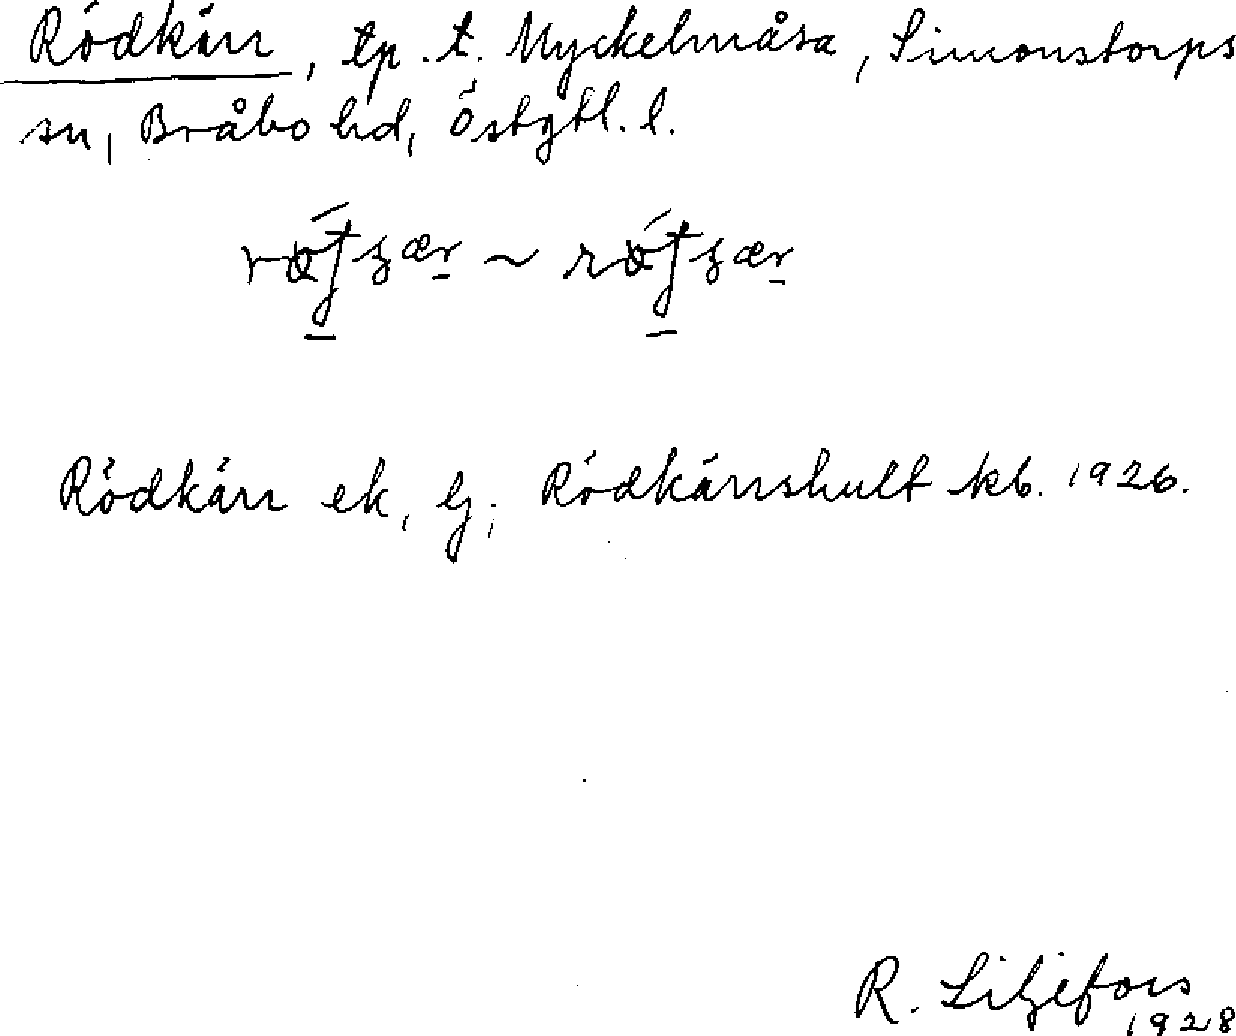 Rödkärr, tp. t. Myckelmåsa, Simonstorps
sn, Bråbo hd, Östgtl. l.
Rödkärr ek, lj; Rödkärrshult kb. 1926.
R. Liljefors
1928